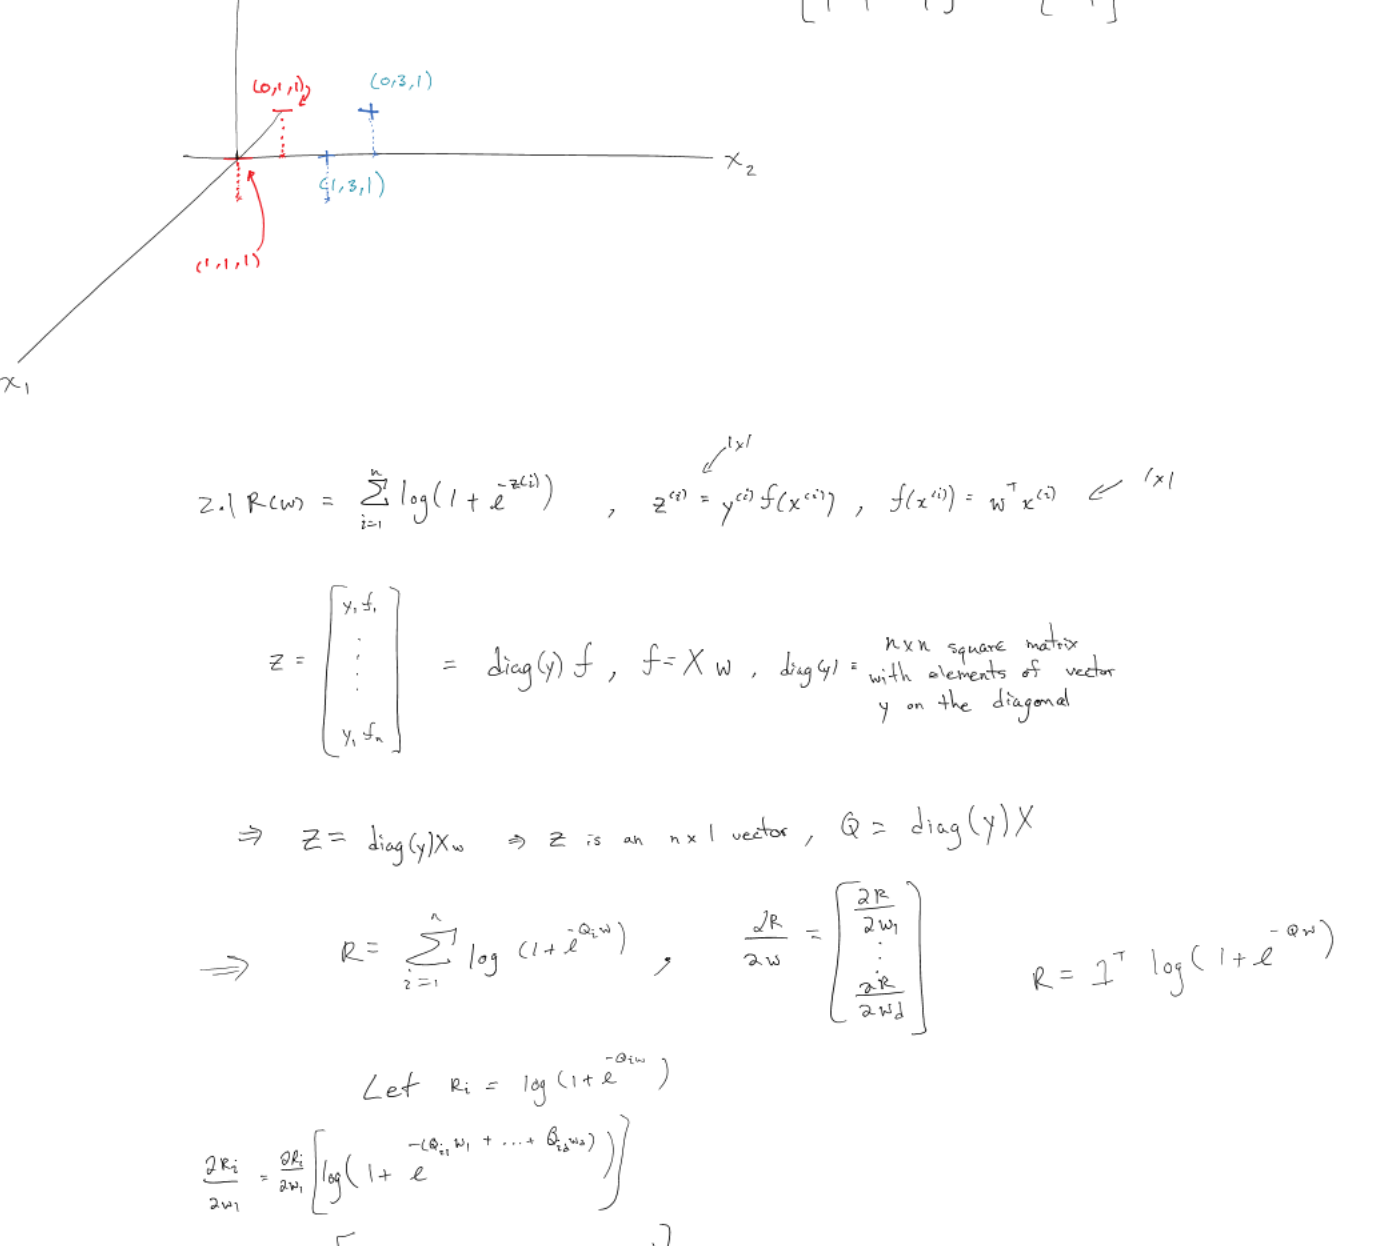 (0,1,1)
(0,3,1)
x₂
(1,3,1)
(1,1,1)
x₁
1x1
2.1 R(w) = Σ_{i=1}^{n} log(1 + e^{-z^{(i)}}) , z^{(i)} = y^{(i)} f(x^{(i)}) , f(x^{(i)}) = w^T x^{(i)} ← 1x1
z = [y₁ f₁ ⋮ y₁ fₙ] = diag(y) f , f = X w , diag(y) = n x n square matrix
with elements of vector
y on the diagonal
⇒ Z = diag(y)Xw ⇒ Z is an n x 1 vector , Q = diag(y)X
⇒ R = Σ_{i=1}^{n} log (1 + e^{-Q_i w}) , ∂R/∂w = [∂R/∂w₁ ⋮ ∂R/∂w_d] R = 1^T log(1 + e^{-Qw})
Let R_i = log(1 + e^{-Q_i w})
∂R_i/∂w₁ = ∂R_i/∂w₁ [log(1 + e^{-(Q_{i1} w₁ + ... + Q_{id} w_d)})]